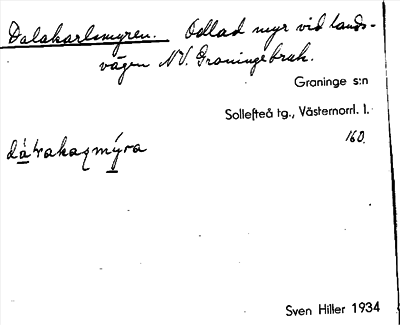 Dalakarlsmyren. Odlad myr vid lands-
vägen NV. Graningebruk.
Graninge s:n
Sollefteå tg., Västernorrl. l.
160.
Sven Hiller 1934